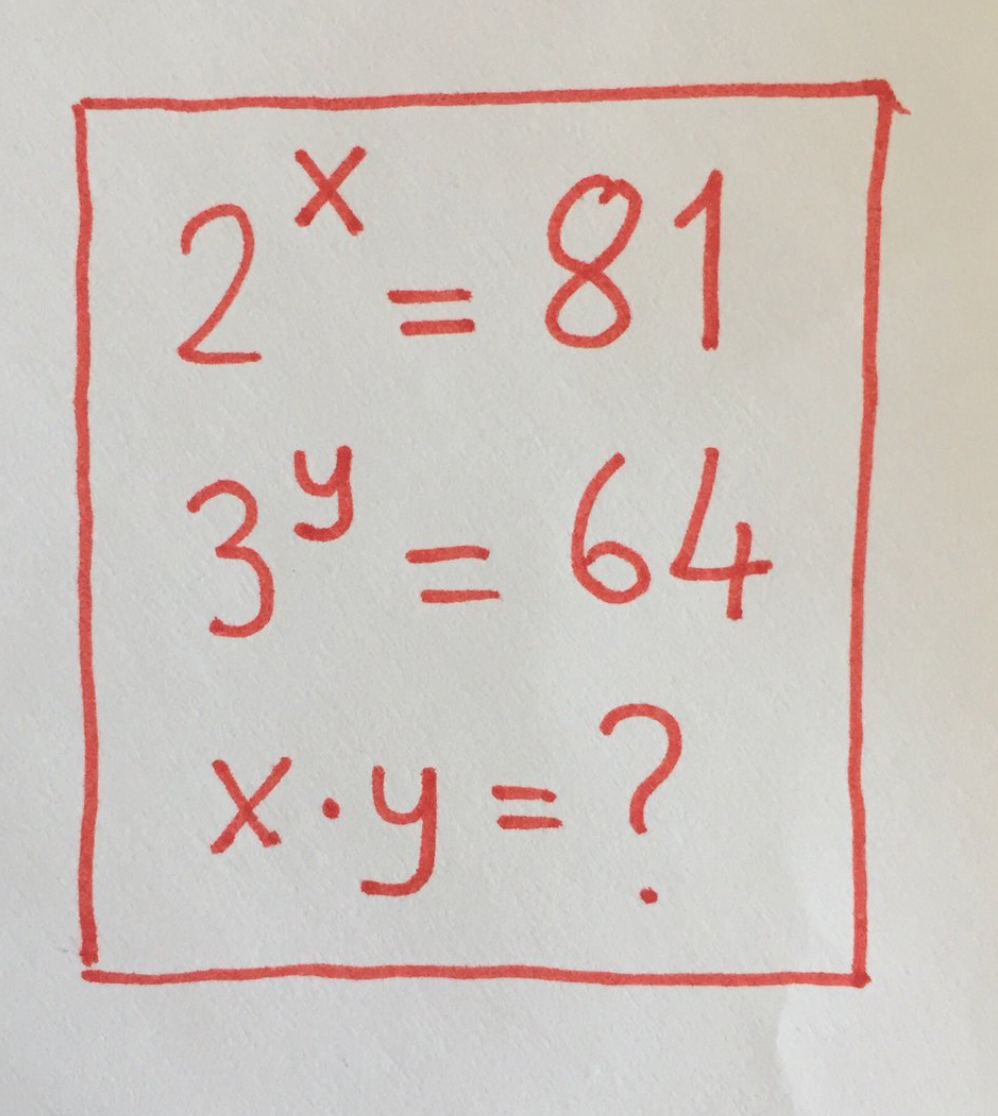 2ˣ = 81
3ʸ = 64
x · y = ?